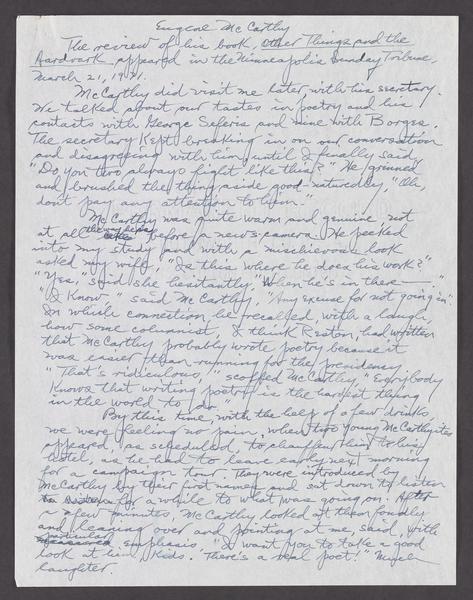 Eugene McCarthy
The review of his book, Other Things and the
Aardvark appeared in the Minneapolis Sunday Tribune,
March 21, 1971.
McCarthy did visit me later with his secretary.
We talked about our tastes in poetry and his
contacts with George Seferis and mine with Borges.
The secretary kept breaking in on our conversation
and disagreeing with him, until I finally said,
"Do you two always fight like this?" He grinned
and brushed the thing aside good-naturedly, "Oh,
don't pay any attention to him."
McCarthy was quite warm and genuine, not
at all the way he is before a news-camera. He peeked
into my study and with a mischievous look
asked my wife, "Is this where he does his work?"
"Yes, said she hesitantly. "When he's in there—"
"I know," said McCarthy, "Any excuse for not going in".
In which connection he recalled, with a laugh,
how some columnist, I think Reston, had written
that McCarthy probably wrote poetry because it
was easier than running for the presidency.
"That's ridiculous," scoffed McCarthy, "Everybody
knows that writing poetry is the hardest thing
in the world to do."
By this time, with the help of a few drinks,
we were feeling no pain, when two young McCarthyites
appeared, as scheduled, to chauffeur him to his
hotel, as he had to leave early next morning
for a campaign tour. They were introduced by
McCarthy by their first names and sat down to listen
for a while to what was going on. After
a few minutes, McCarthy looked at them fondly
and leaning over and pointing at me said, with
particular emphasis, "I want you to take a good
look at him, kids. There's a real poet!" Much
laughter